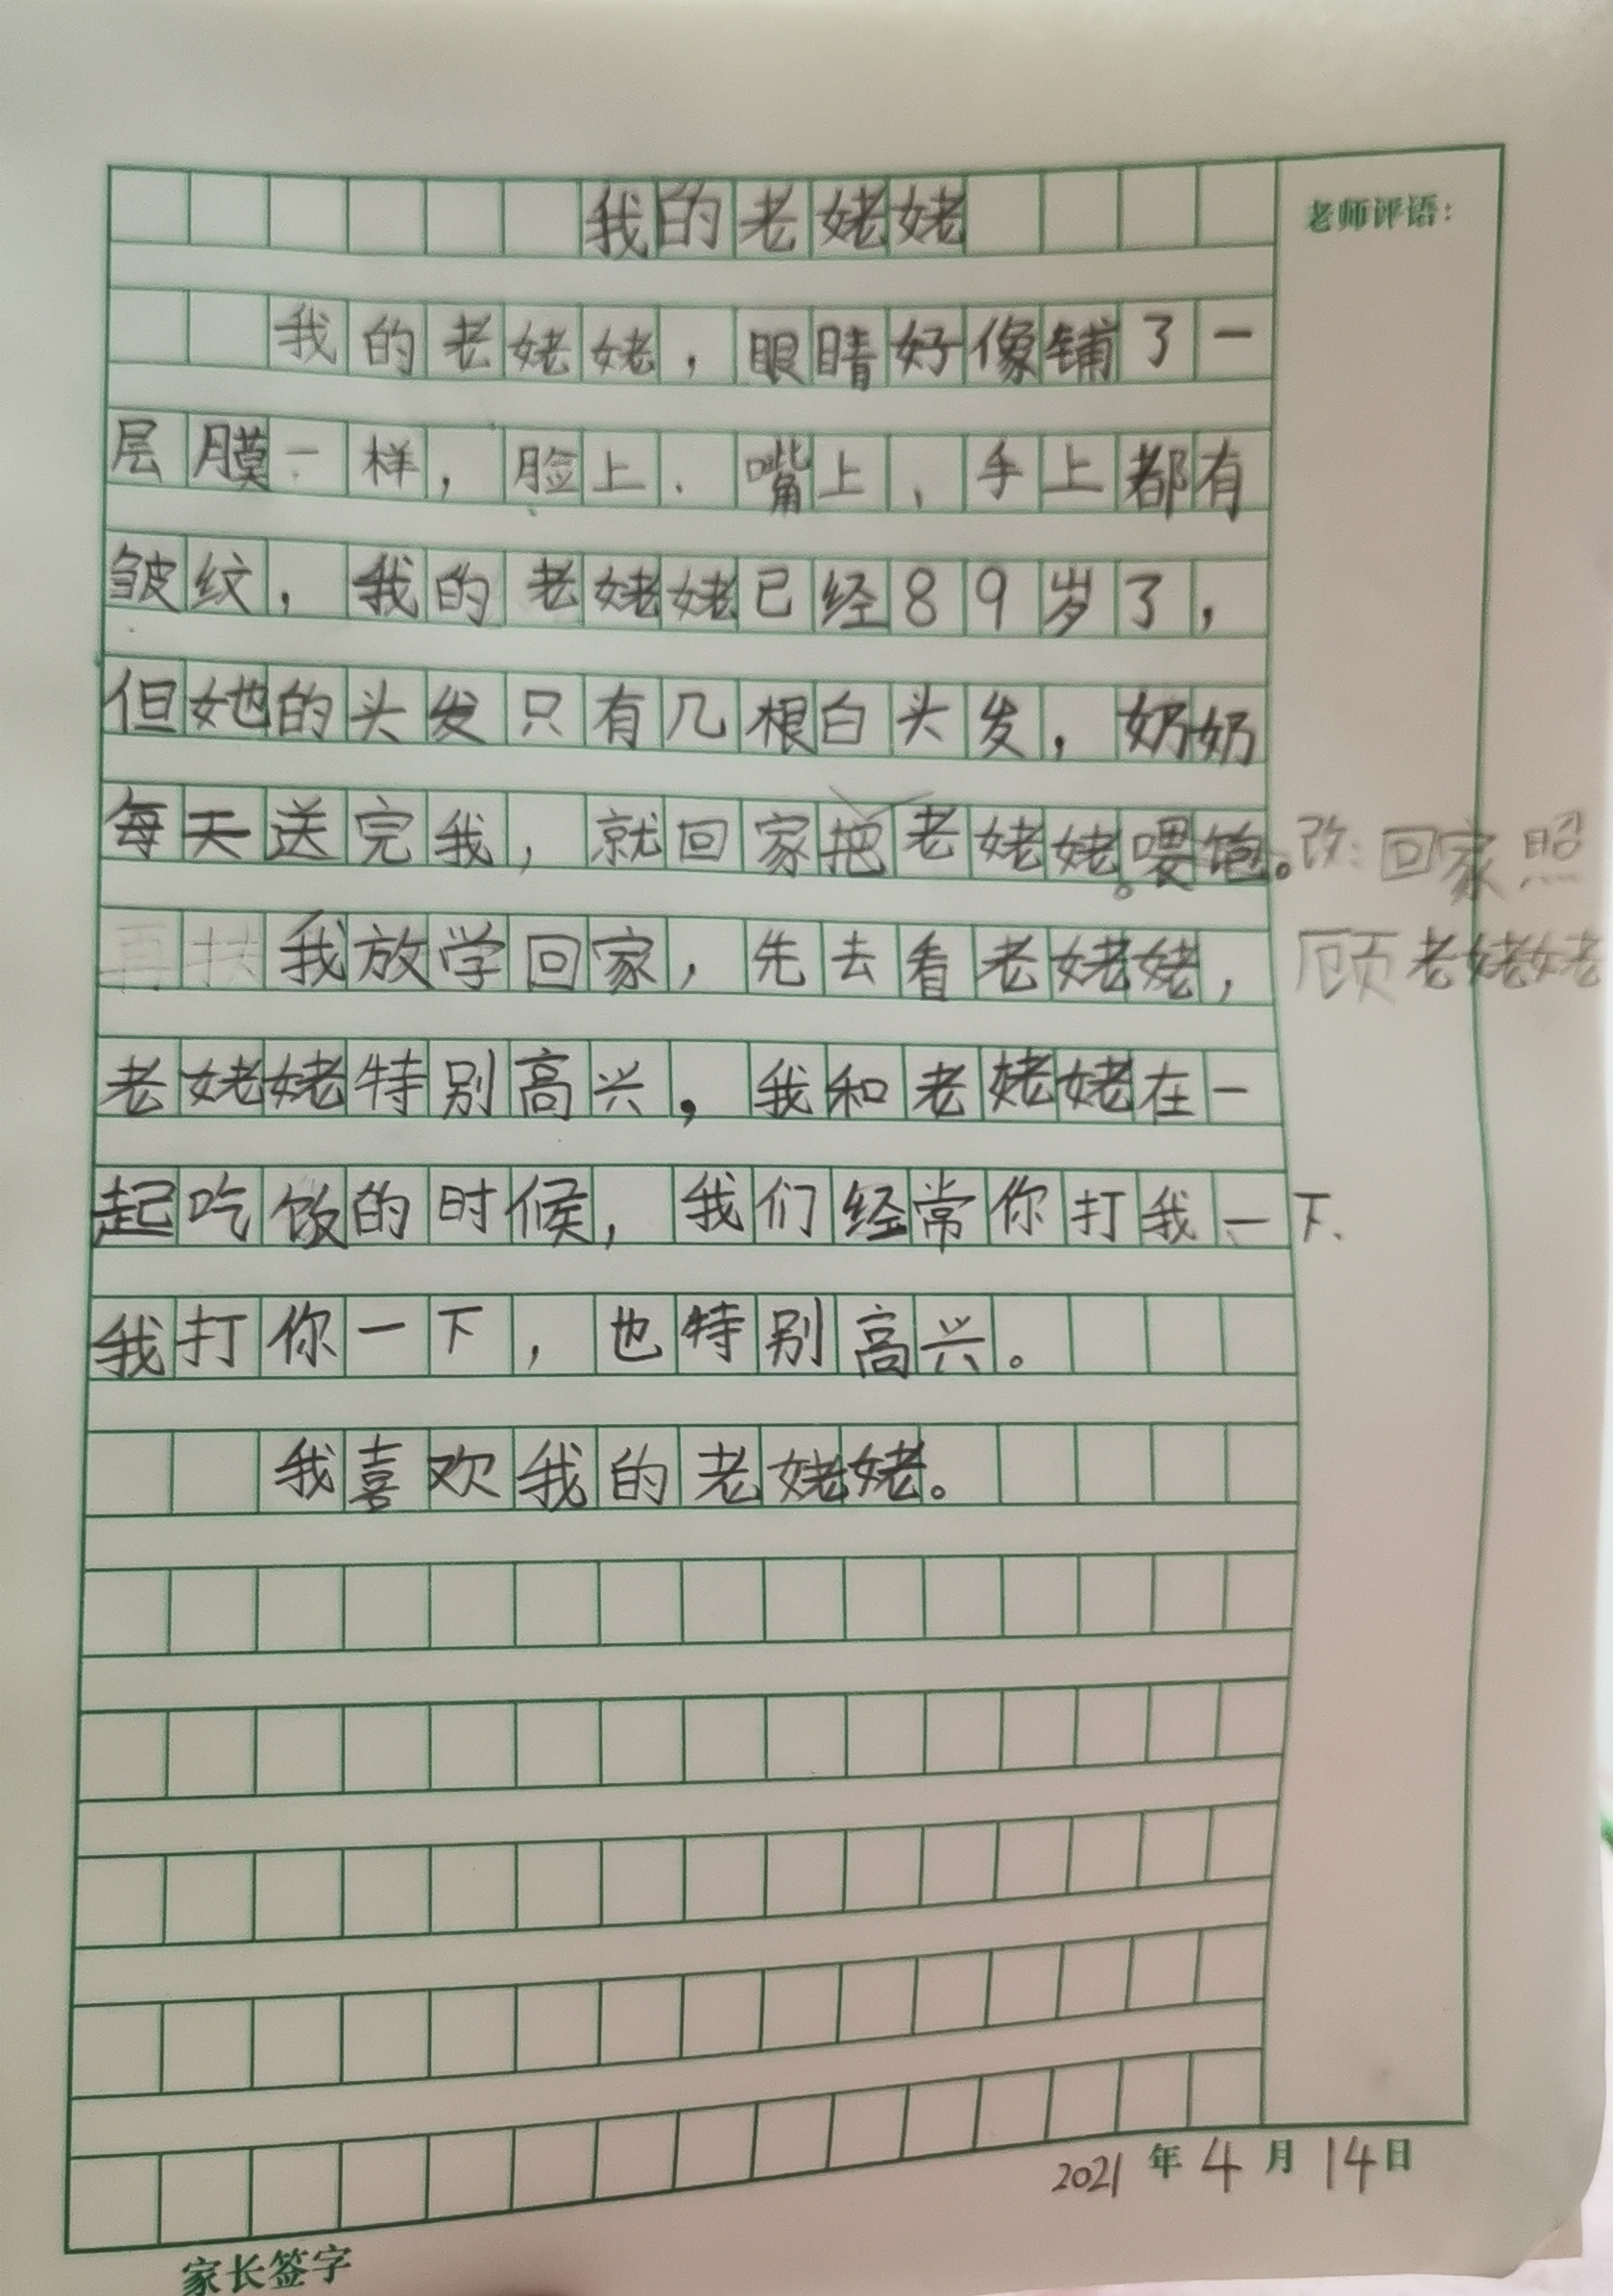 我的老姥姥
老师评语：
我的老姥姥，眼睛好像铺了一
层膜一样，脸上、嘴上、手上都有
皱纹，我的老姥姥已经89岁了，
但她的头发只有几根白头发，奶奶
每天送完我，就回家把老姥姥喂饱。改：回家照
再扶我放学回家，先去看老姥姥，顾老姥姥
老姥姥特别高兴，我和老姥姥在一
起吃饭的时候，我们经常你打我一下、
我打你一下，也特别高兴。
我喜欢我的老姥姥。
2021年4月14日
家长签字